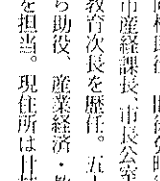 市産経課長、市長公室
教育次長を歴任。五十
ら助役、産業経済・教
を担当。現住所は廿